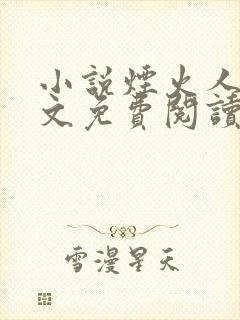 小說煙火人
文免費閱讀
雪漫星天